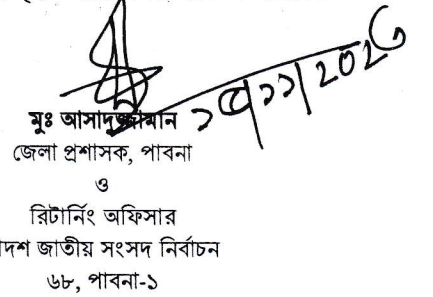 মুঃ আসাদুজ্জামান
জেলা প্রশাসক, পাবনা
ও
রিটার্নিং অফিসার
দশ জাতীয় সংসদ নির্বাচন
৬৮, পাবনা-১